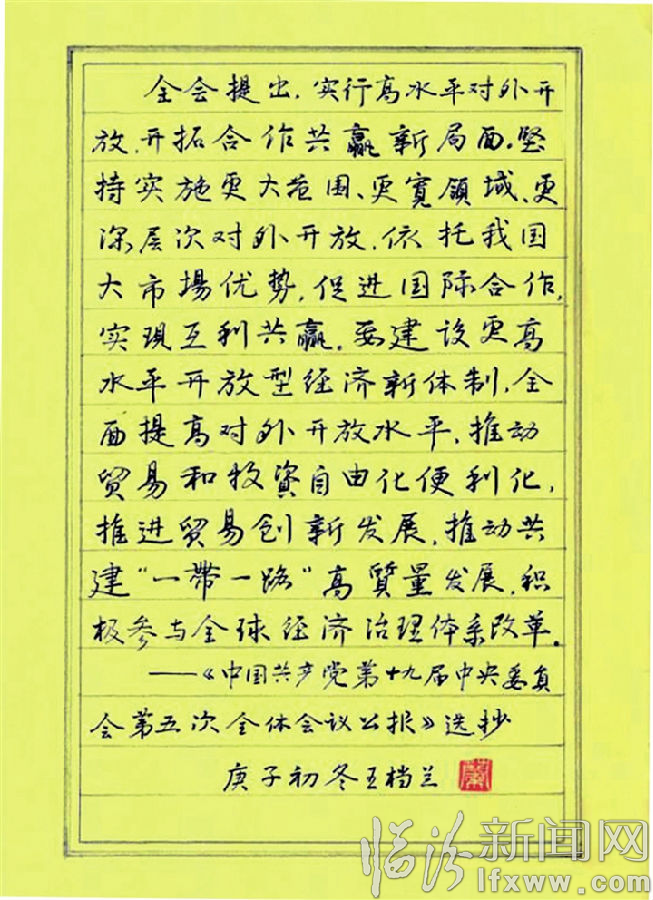 全会提出,实行高水平对外开
放,开拓合作共赢新局面。坚
持实施更大范围、更宽领域、更
深层次对外开放,依托我国
大市場优势,促进国际合作,
实現互利共赢,要建设更高
水平开放型经济新体制,全
面提高对外开放水平,推动
贸易和投資自由化便利化,
推进贸易创新发展,推动共
建“一带一路”高質量发展,积
极参与全球经济治理体系改革。
——《中国共产党第十九届中央委員
会第五次全体会议公报》选抄
庚子初冬王档兰
蘭
临汾新闻网
lfxww.com